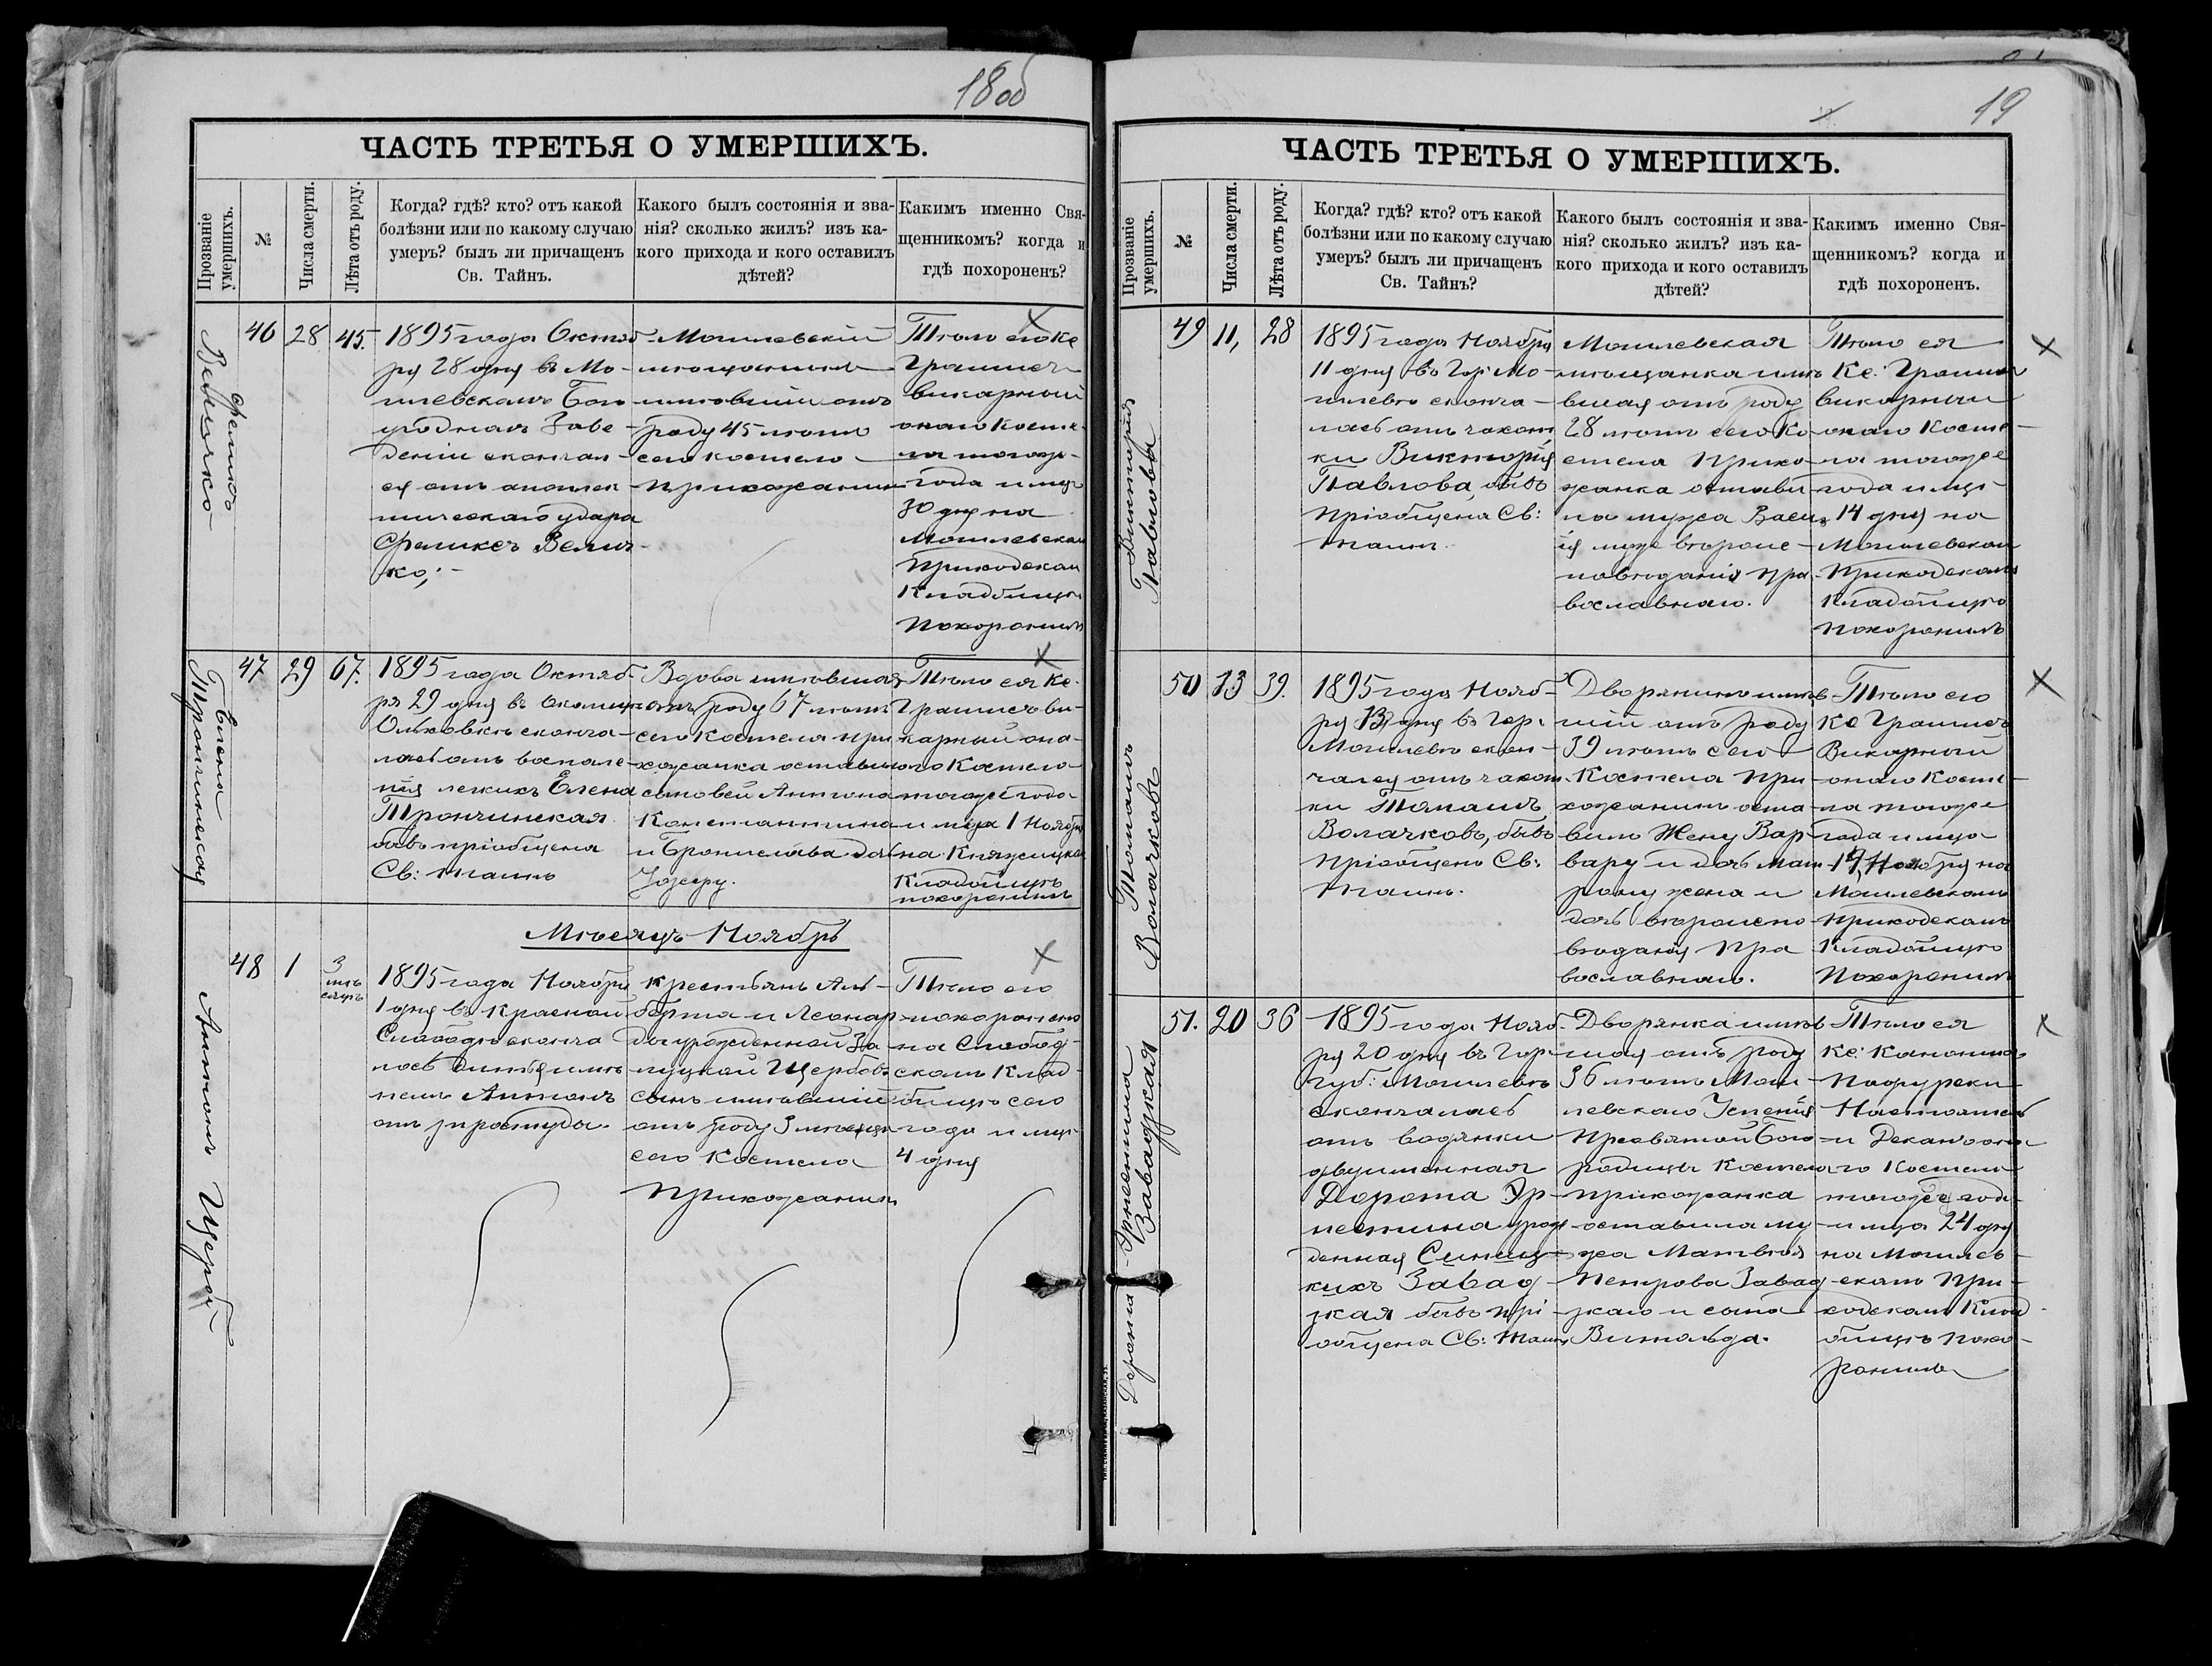 18 об
ЧАСТЬ ТРЕТЬЯ О УМЕРШИХЪ.
Прозваніе умершихъ.
№
Числа смерти.
Лѣта отъ роду.
Когда? гдѣ? кто? отъ какой
болѣзни или по какому случаю
умеръ? былъ ли причащенъ
Св. Тайнъ.
Какого былъ состоянія и зва-
нія? сколько жилъ? изъ ка-
кого прихода и кого оставилъ
дѣтей?
Какимъ именно Свя-
щенникомъ? когда и
гдѣ похороненъ?
Феликсъ
Величко
46
28
45.
1895 года Октяб-
ря 28 дня въ Мо-
гилевскомъ Бого
угодномъ Заве-
деніи скончал-
ся отъ апоплек-
тическаго удара
Феликсъ Велич-
ко,
Могилевскій
мѣщанинъ
имѣвшій отъ
роду 45 лѣтъ
сего костела
прихожанинъ
Тѣло его Кс
Грашисъ
викарный
онаго Косте-
ла тогоже
года и мця
30 дня на
Могилевскомъ
Приходскомъ
Кладбищѣ
Похоронилъ
Елена
Трончинская
47
29
67.
1895 года Октяб-
ря 29 дня въ Околицѣ
Ольховкѣ сконча-
лась отъ воспале-
нія легкихъ Елена
Трончинская
бывъ пріобщена
Св: таинъ
Вдова имѣвшая
отъ роду 67 лѣтъ
сего Костела при
хожанка оставила
сыновей Антона
Константина
и Бронислава дочь
Юзефу.
Тѣло ея Кс.
Грашисъ ви-
карный она-
го Костела
тогоже года
и мца 1 Ноября
на Княжицкомъ
Кладбищѣ
похоронилъ
Мѣсяцъ Ноябрь
Антонъ Щерба
48
1
3
мѣ
сяцъ
1895 года Ноября
1 дня въ Красной
Слободѣ сконча
лось дитя име
немъ Антонъ
отъ простуды.
Крестьянъ Аль-
берта и Леонар-
ды урожденной За-
луцкой Щербовъ
сынъ имѣвшій
отъ роду 3 мѣсяца
сего Костела
Прихожанинъ
Тѣло его
похоронено
на Слобод-
скомъ Клад-
бищѣ сего
года и мця
4 дня
19
ЧАСТЬ ТРЕТЬЯ О УМЕРШИХЪ.
Прозваніе умершихъ.
№
Числа смерти.
Лѣта отъ роду.
Когда? гдѣ? кто? отъ какой
болѣзни или по какому случаю
умеръ? былъ ли причащенъ
Св. Тайнъ?
Какого былъ состоянія и зва-
нія? сколько жилъ? изъ ка-
кого прихода и кого оставилъ
дѣтей?
Какимъ именно Свя-
щенникомъ? когда и
гдѣ похороненъ.
Викторія
Павлова
49
11,
28
1895 года Ноября
11 дня въ Гор: Мо-
гилевѣ сконча-
лась отъ чахот
ки Викторія
Павлова, бывъ
пріобщена Св:
таинъ.
Могилевская
мѣщанка имѣ
вшая отъ роду
28 лѣтъ сего Ко
стела Прихо-
жанка остави
ла мужа Васи
ія мужъ вѣроис-
повѣданія пра
вославнаго.
Тѣло ея
Кс: Грашисъ
викарный
онаго Косте-
ла тогоже
года и мця
14 дня на
Могилевскомъ
Приходскомъ
Кладбищѣ
похоронилъ
Томашъ
Волачковъ
50
13
39.
1895 года Нояб-
ря 13 дня въ Гор:
Могилевѣ скон-
чался отъ чахот
ки Томашъ
Волачковъ, бывъ
Пріобщенъ Св:
таинъ.
Дворянинъ имѣв-
шій отъ роду
39 лѣтъ сего
Костела При
хожанинъ оста
вилъ Жену Вар-
вару и дочь Мат-
рону жена и
дочь вѣроиспо
вѣданія Пра
вославнаго.
Тѣло его
Кс Грашисъ
Викарный
онаго Косте-
ла тогоже
года и мца
Ноября на
Могилевскомъ
Приходскомъ
Кладбищѣ
Похоронилъ
Дорота-Эрнестина
Завадзкая
51.
20
36
1895 года Нояб-
ря 20 дня въ Гор-
Губ: Могилевѣ
скончалась
отъ водянки
двуименная
Дорота Эр-
нестина урож
денная Синиц-
кихъ Завад-
зкая бывъ прі-
общена Св: Таинъ
Дворянка имѣв
шая отъ роду
36 лѣтъ Моги-
левскаго Успенія
Пресвятой Бого-
родицы Костела
прихожанка
оставила му-
жа Матвѣя
Петрова Завад-
зкаго и сына
Витольда.
Тѣло ея
Кс: Каноникъ
Настоятель
и Деканъ она
го Костела
тогоже года
и мца 24 дня
на Могилев-
скомъ При-
ходскомъ Клад
бищѣ похо-
ронилъ